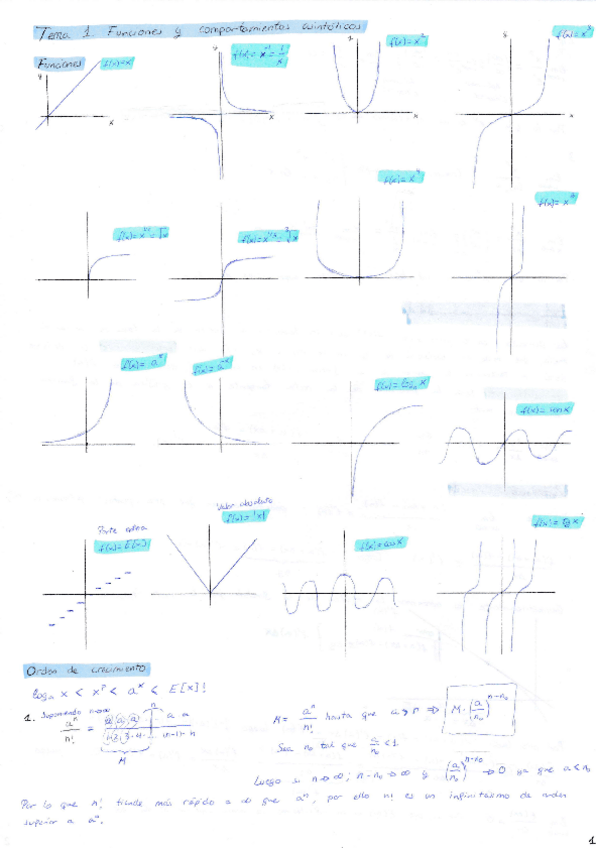 Tema 1. Funciones y comportamientos asintóticos
Funciones
f(x)=x
f(x)=x⁻¹=1/x
f(x)=x²
f(x)=x³
y
x
y
x
x
y
x
f(x)=x⁴
f(x)=x^{1/2}=√x
f(x)=x^{1/3}=∛x
f(x)=a^x
f(x)=log_a x
f(x)=sen x
Parte entera
f(x)=E[x]
Valor absoluto
f(x)=|x|
f(x)=cos x
f(x)=tg x
Orden de crecimiento
log_a x < x^p < a^x < E[x]!
1. Suponiendo n>a
a^n/n! = a·a·a ··· a·a / 1·2·3·4··· (n-1)·n
M
M = a^n/n! hasta que a>n ⇒ M·(a/n₀)^{n-n₀}
Sea n₀ tal que a/n₀ <1
Luego si n→∞; n-n₀→∞ y (a/n₀)^{n-n₀} → 0 ya que a<n₀
Por lo que n! tiende más rápido a ∞ que a^n, por ello n! es un infinitésimo de orden
superior a a^n.
1